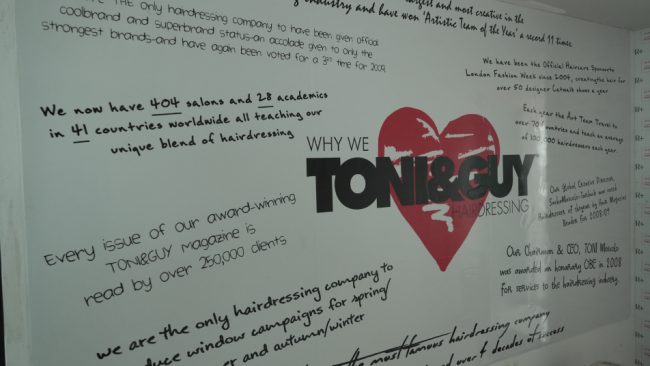 largest and most creative in the
industry and have won 'Artistic Team of the Year' a record 11 times
THE only hairdressing company to have been given official
coolbrand and superbrand status-an accolade given to only the
strongest brands-and have again been voted for a 3rd time for 2009.
We have been the Official Haircare Sponsors
London Fashion Week since 2004, creating the hair for
over 50 designer catwalk shows a year
We now have 404 salons and 28 academies
in 41 countries worldwide all teaching our
unique blend of hairdressing
Each year the Art Team Travel to
over countries and teach an average
of 100,000 hairdressers each year.
WHY WE
TONI&GUY
HAIRDRESSING
Our Global Creative Director,
was voted
Hairdresser of the year by Hair Magazine
2008/09
Every issue of our award-winning
TONI&GUY magazine is
read by over 250,000 clients
Our Chairman & CEO, TONI Mascolo
was awarded an honorary OBE in 2008
for services to the hairdressing industry.
we are the only hairdressing company to
duce window campaigns for spring/
er and autumn/winter
the most famous hairdressing company
over 4 decades of success